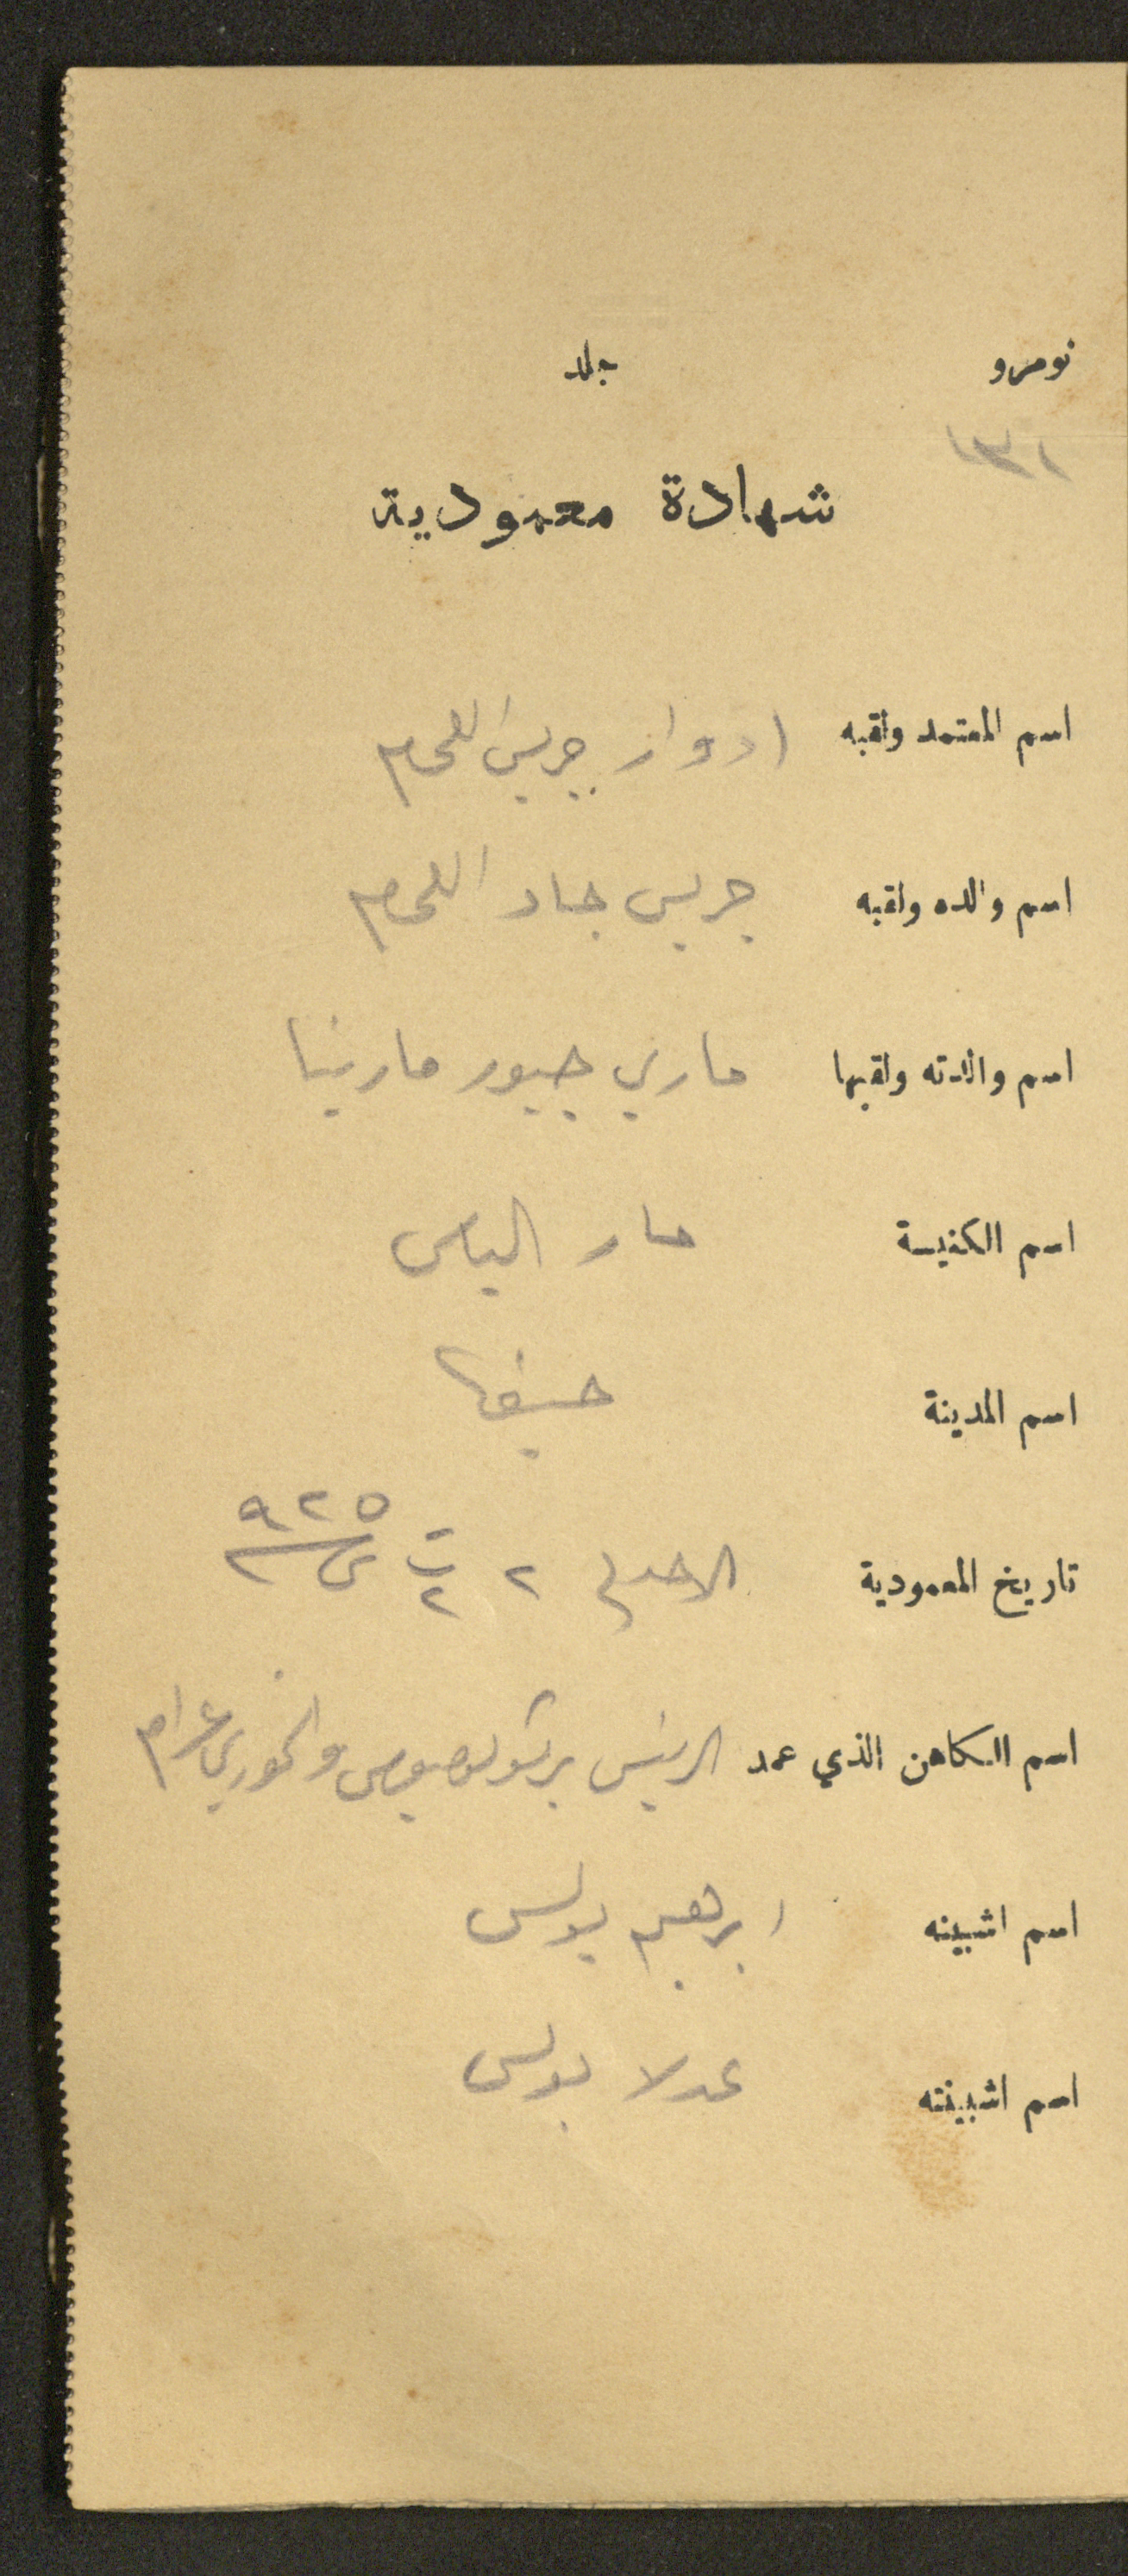 نومرو جلد
١٣١
شهادة معمودية
اسم المعتمد ولقبه ادوار جريس اللحام
اسم والده ولقبه جريس جاد اللحام
اسم والدته ولقبها ماري جبور مارينا
اسم الكنيسة مار الياس
اسم المدينة حيفا
تاريخ المعمودية الاحد في ٢ ت٢ س ٩٢٥
اسم الكاهن الذي عمد الريس والخوري
اسم اشبينه ابرهيم بولس
اسم اشبينته عدلا بولس